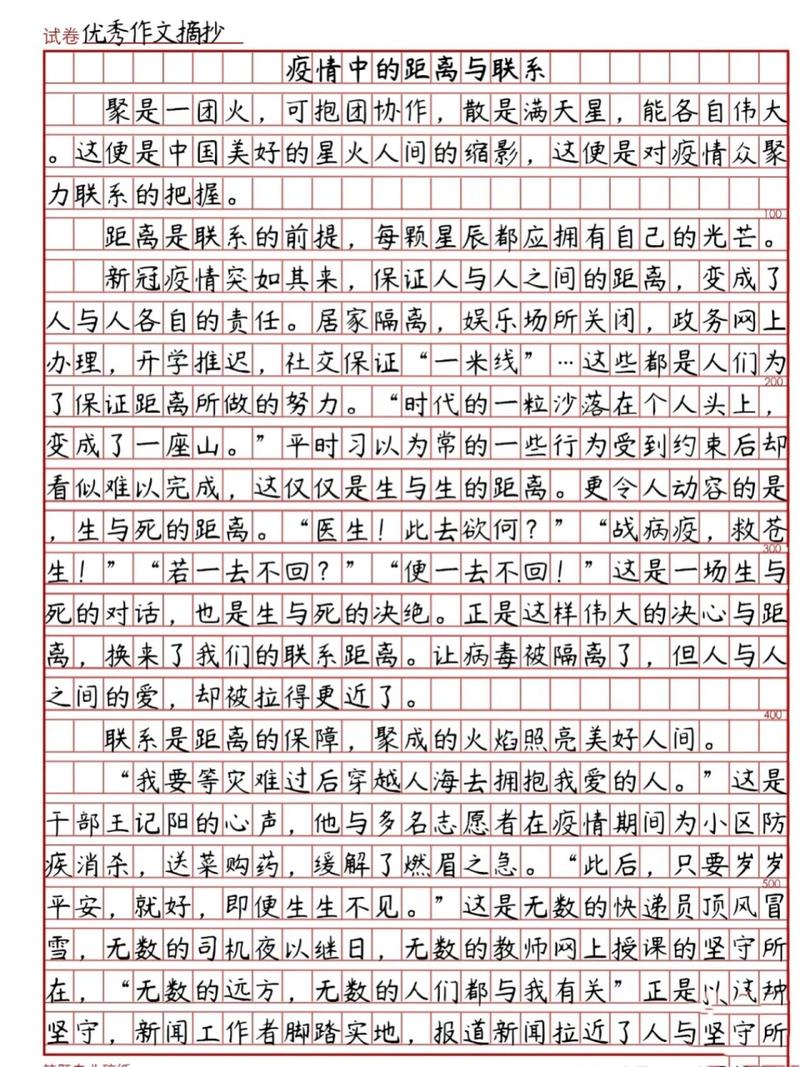 试卷优秀作文摘抄
疫情中的距离与联系
聚是一团火，可抱团协作，散是满天星，能各自伟大
。这便是中国美好的星火人间的缩影，这便是对疫情众聚
力联系的把握。
100
距离是联系的前提，每颗星辰都应拥有自己的光芒。
新冠疫情突如其来，保证人与人之间的距离，变成了
人与人各自的责任。居家隔离，娱乐场所关闭，政务网上
办理，开学推迟，社交保证“一米线”…这些都是人们为
200
了保证距离所做的努力。“时代的一粒沙落在个人头上，
变成了一座山。”平时习以为常的一些行为受到约束后却
看似难以完成，这仅仅是生与生的距离。更令人动容的是
，生与死的距离。“医生！此去欲何？”“战病疫，救苍
300
生！”“若一去不回？”“便一去不回！”这是一场生与
死的对话，也是生与死的决绝。正是这样伟大的决心与距
离，换来了我们的联系距离。让病毒被隔离了，但人与人
之间的爱，却被拉得更近了。
400
联系是距离的保障，聚成的火焰照亮美好人间。
“我要等灾难过后穿越人海去拥抱我爱的人。”这是
干部王记阳的心声，他与多名志愿者在疫情期间为小区防
疾消杀，送菜购药，缓解了燃眉之急。“此后，只要岁岁
500
平安，就好，即使生生不见。”这是无数的快递员顶风冒
雪，无数的司机夜以继日，无数的教师网上授课的坚守所
在，“无数的远方，无数的人们都与我有关”正是以这种
坚守，新闻工作者脚踏实地，报道新闻拉近了人与坚守所